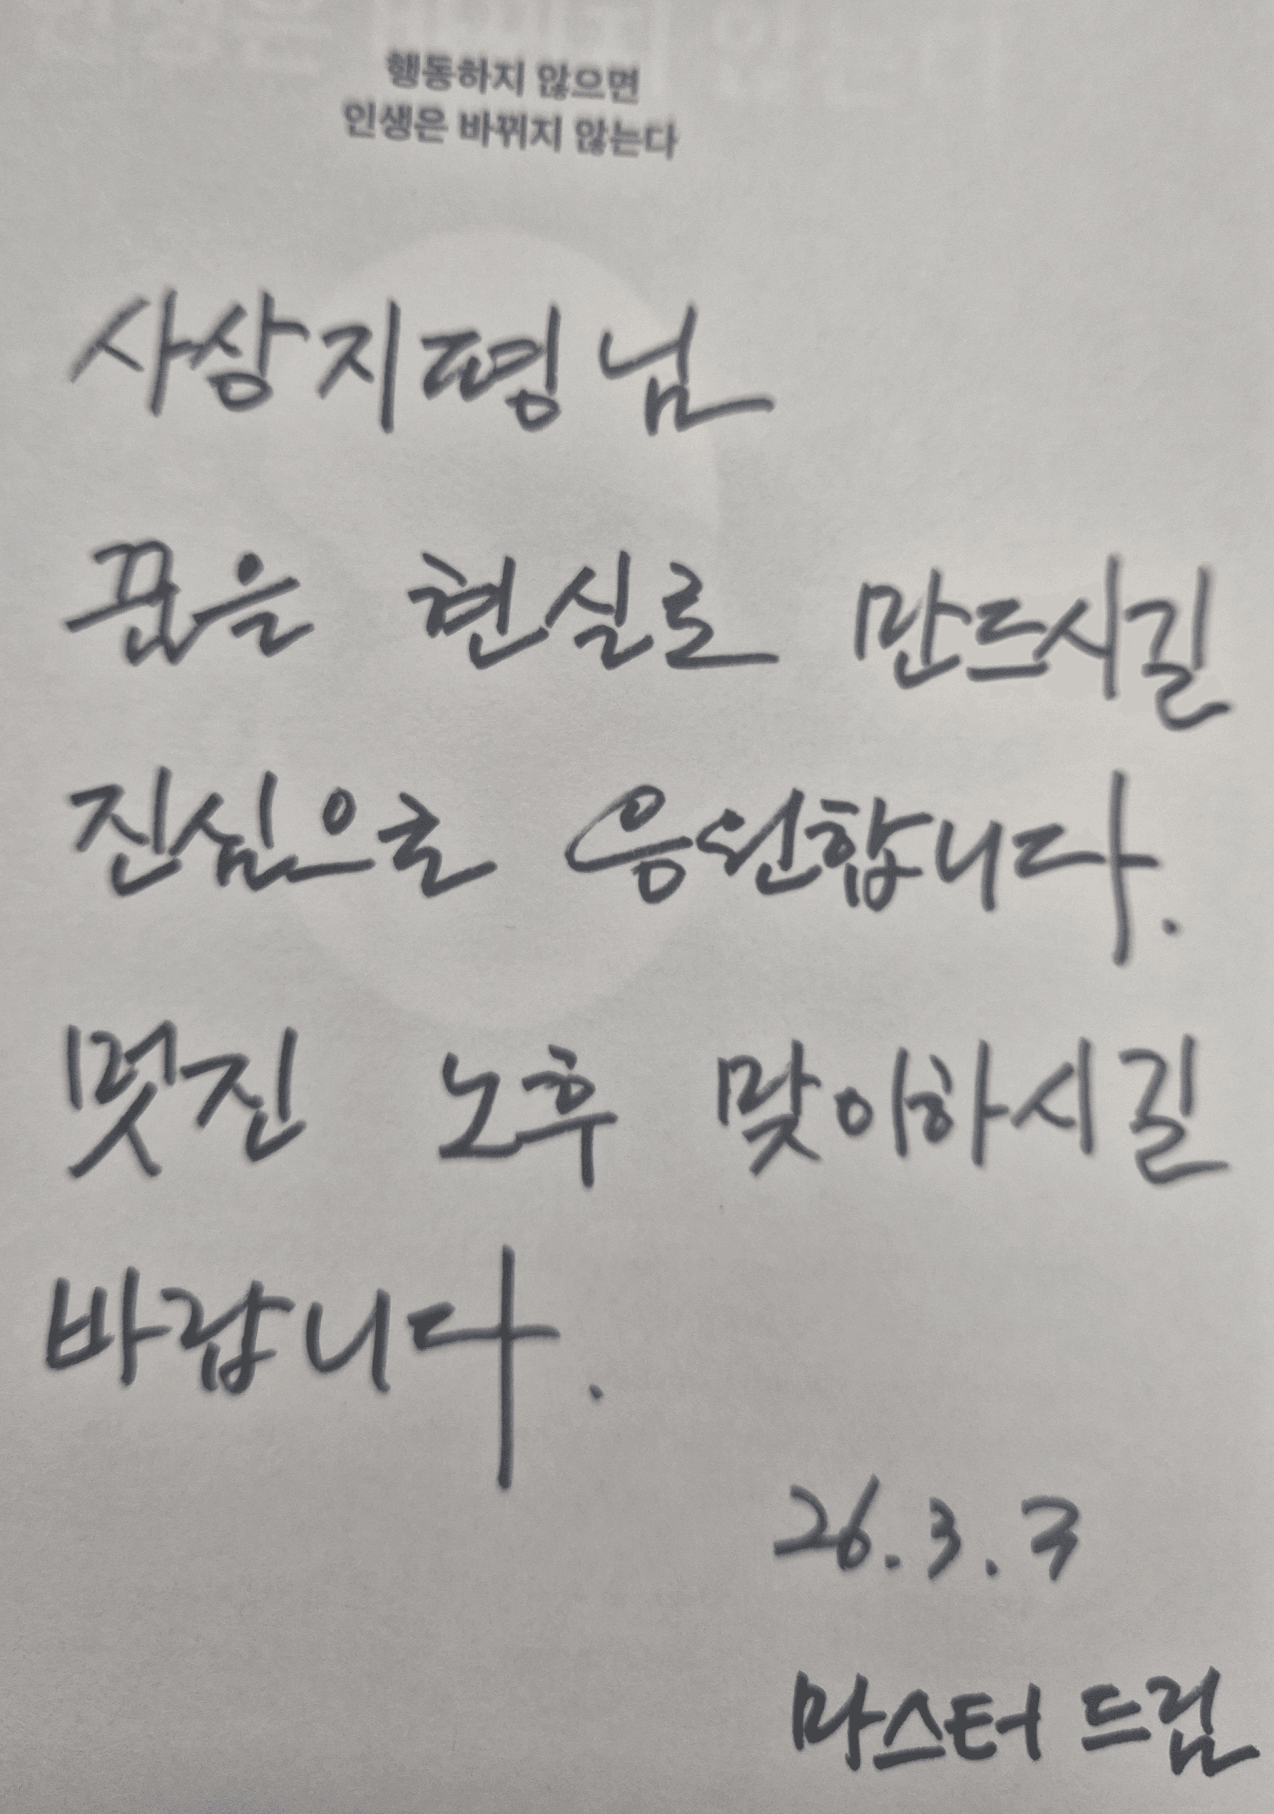 행동하지 않으면
인생은 바뀌지 않는다
사상지평 님
꿈을 현실로 만드시길
진심으로 응원합니다.
멋진 노후 맞이하시길
바랍니다.
26. 3. 3
마스터 드림